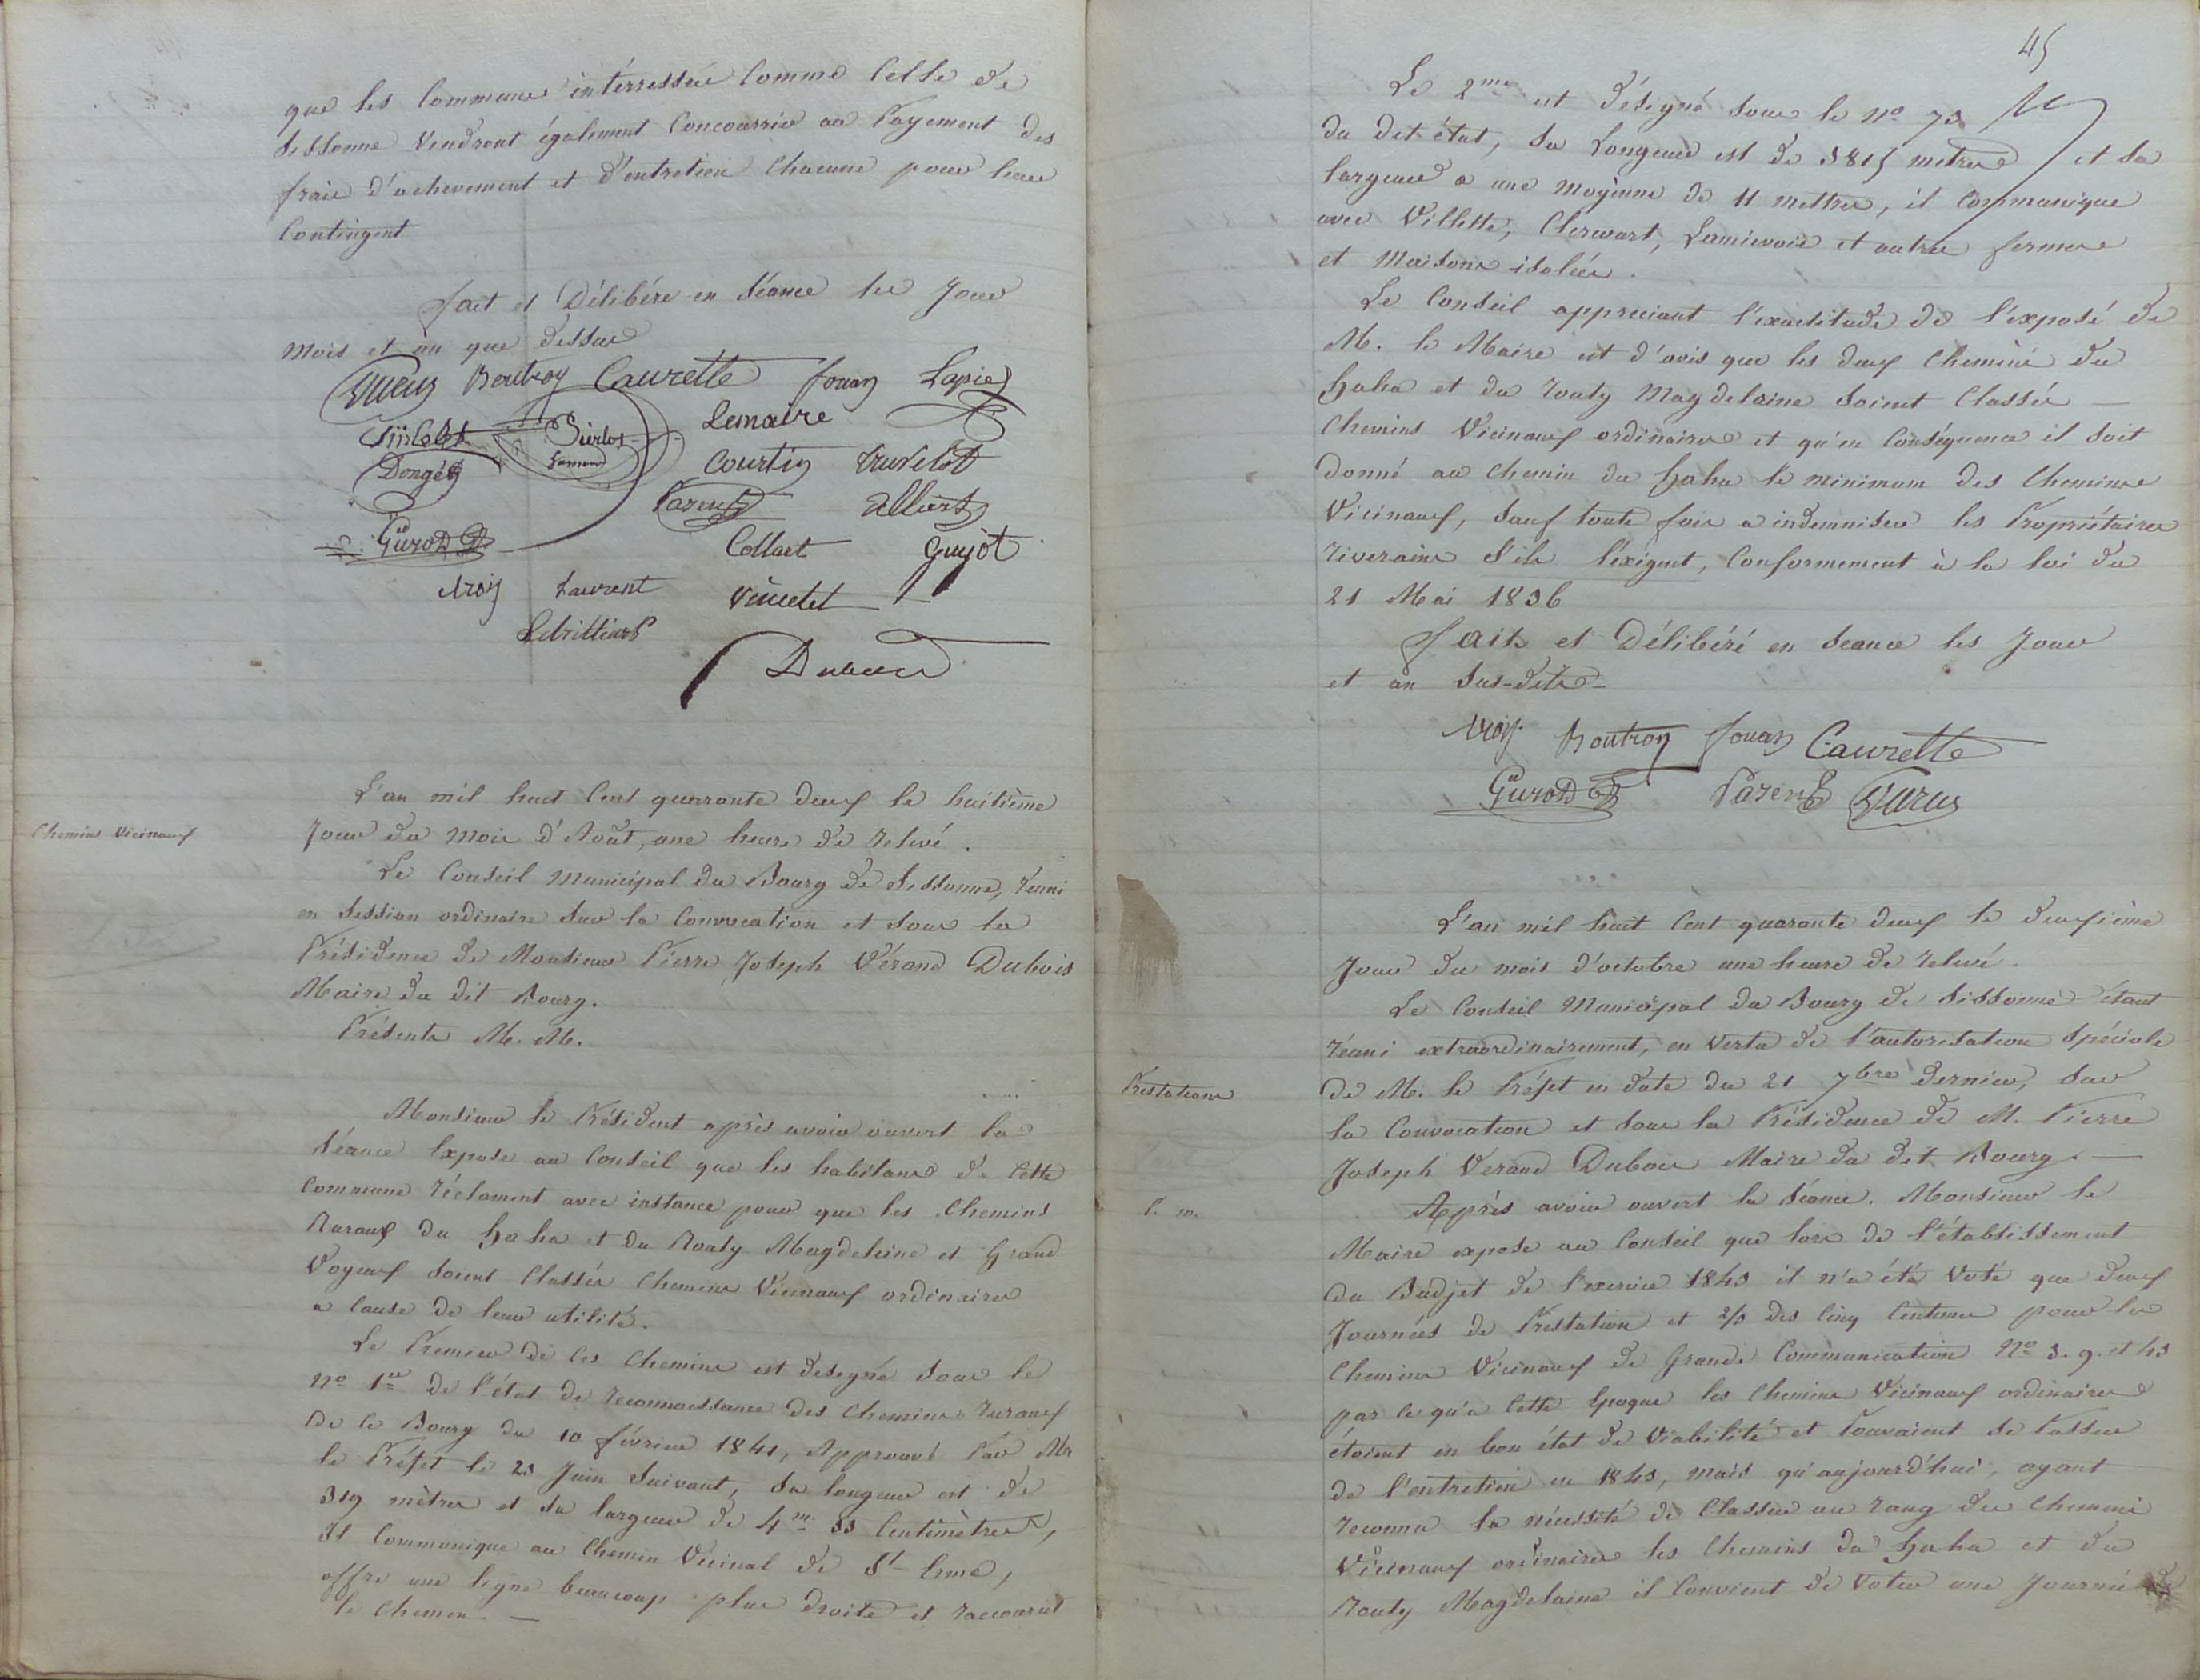 que les Communes intérressées Comme Celle de
Sissonne Viendront également Concourrir au Payement des
frais d'achevement et d'entretien Chacune pour leur
Contingent
fait et Délibéré en Séance les Jour
mois et an que dessus
Boutroy Caurette Jouan Lapie
Lemaire
Dongé Courtin Truvelot
Parent Albert
Gurod Collart Guyot
Laurent
Dubois
L'an mil huit Cent quarante deux le huitième
Chemins Vicinaux
Jour du mois d'Août, une heure de relevé.
Le Conseil Municipal du Bourg de Sissonne, réuni
en Session ordinaire sur la Convocation et sous la
Présidence de Monsieur Pierre Joseph Vérand Dubois
Maire du dit Bourg.
Présents M. M.
Monsieur le Président après avoir ouvert la
Séance Expose au Conseil que les habitans de Cette
Commune réclament avec instance pour que les Chemins
Ruraux du Haha et du Routy Magdeleine et Grand
Voyeux soient Classés Chemins Vicinaux ordinaires
a Cause de leur utilité.
Le Premier de Ces Chemins est desegné sous le
No 1er de l'état de reconnoissance des Chemins ruraux
de Ce Bourg du 10 février 1841, Approuvé Par Mr
le Préfet le 23 Juin Suivant, Sa longeur est de
319 mètres et Sa largeur de 4m 33 Centimètres,
Il Communique au Chemin Vicinal de St Erme,
offre une ligne beaucoup plus droite et raccourcit
le Chemin. —
45
Le 2me est désegné sous le No 73
du dit état, Sa Longeur est de 3815 metres et Sa
largeur a une moyenne de 11 mettres, il Communique
avec Villette, Clerwart, Lamievoie et autres fermes
et Maisons isolées.
Le Conseil appreciant l'exactitude de l'exposé de
M. le Maire est d'avis que les deux Chemins du
Haha et du Routy Magdelaine Soient Classés —
Chemins Vicinaux ordinaires et qu'en Conséquence il soit
donné au Chemin du Haha le minimum des Chemins
Vicinaux, Sauf toute fois a indemniser les Propriétaires
riverains S'ils l'exigent, Conformement à la loi du
21 Mai 1836
faits et Délibéré en Seance les Jour
et an Sus-dits —
Boutroy Jouan Caurette
Gurod Parent
L'an mil huit Cent quarante deux le deuxième
Jour du mois d'octobre une heure de relevé.
Le Conseil Municipal du Bourg de Sissonne étant
réuni extraordinairement, en Vertu de l'autorisation Spéciale
Prestations
de M. le Préfet en date du 21 7bre dernier, Sur
la Convocation et sous la Présidence de M. Pierre
Joseph Verand Dubois Maire du dit Bourg. —
C. m.
Après avoir ouvert la Séance. Monsieur le
Maire expose au Conseil que lors de l'établissement
du Budjet de l'exercice 1843 il n'a été Voté que deux
Journées de Prestation et 2/3 des Cinq Centimes pour les
Chemins Vicinaux de Grande Communication No 3. 9. et 43
par ce qu'a Cette Epoque les Chemins Vicinaux ordinaires
étoient en bon état de Viabilité et Pouvaient se Passer
de l'entretien en 1843, mais qu'aujourd'hui, ayant
reconnu la nécessité de Classer au rang des Chemins
Vicinaux ordinaires les Chemins du Haha et du
Routy Magdelaine il Convient de Voter une Journée